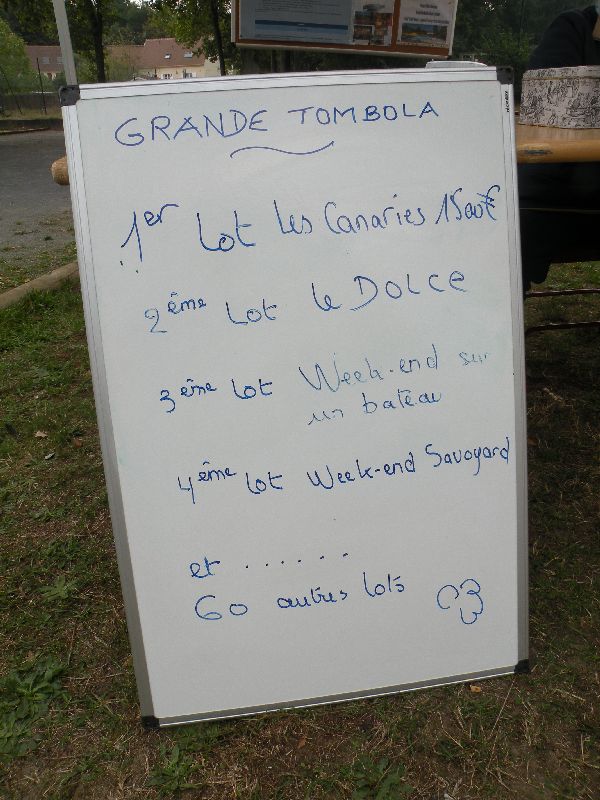 GRANDE TOMBOLA
1er Lot les Canaries 1500€
2ème Lot le DOLCE
3ème lot Week-end sur
un bateau
4ème lot Week-end Savoyard
et ......
60 autres lots